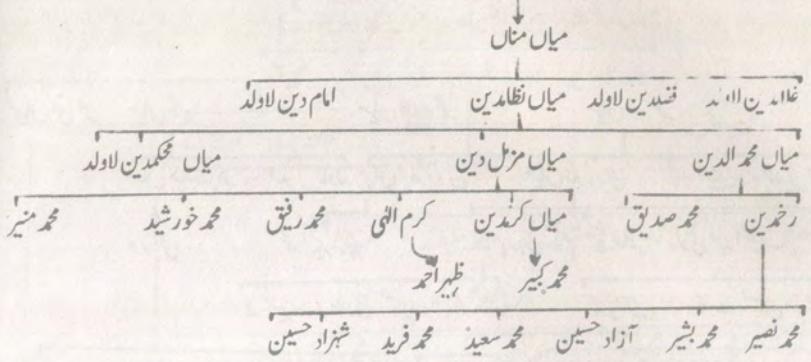 میاں مناں
فضلدین لاولد میاں نظامدین امام دین لاولد
میاں محمد الدین میاں مزمل دین میاں محکمدین لاولد
رحمدین محمد صدیق میاں کرمدین کرم الٰہی محمد رفیق محمد خورشید محمد منیر
محمد کبیر ظہیر احمد
محمد نصیر محمد بشیر آزاد حسین محمد سعید محمد فرید شہزاد حسین